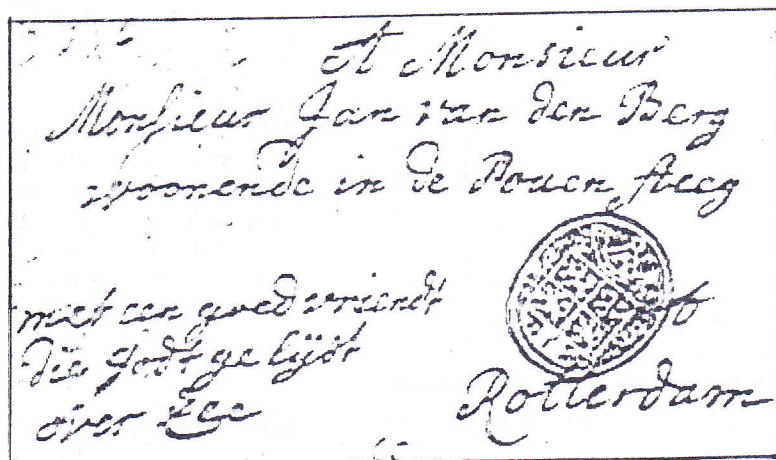 A Monsieur
Monsieur Jan van den Berg
woonende in de Pouen steeg
met een goed vriendt
die godt gelijdt
over Zee
tot
Rotterdam